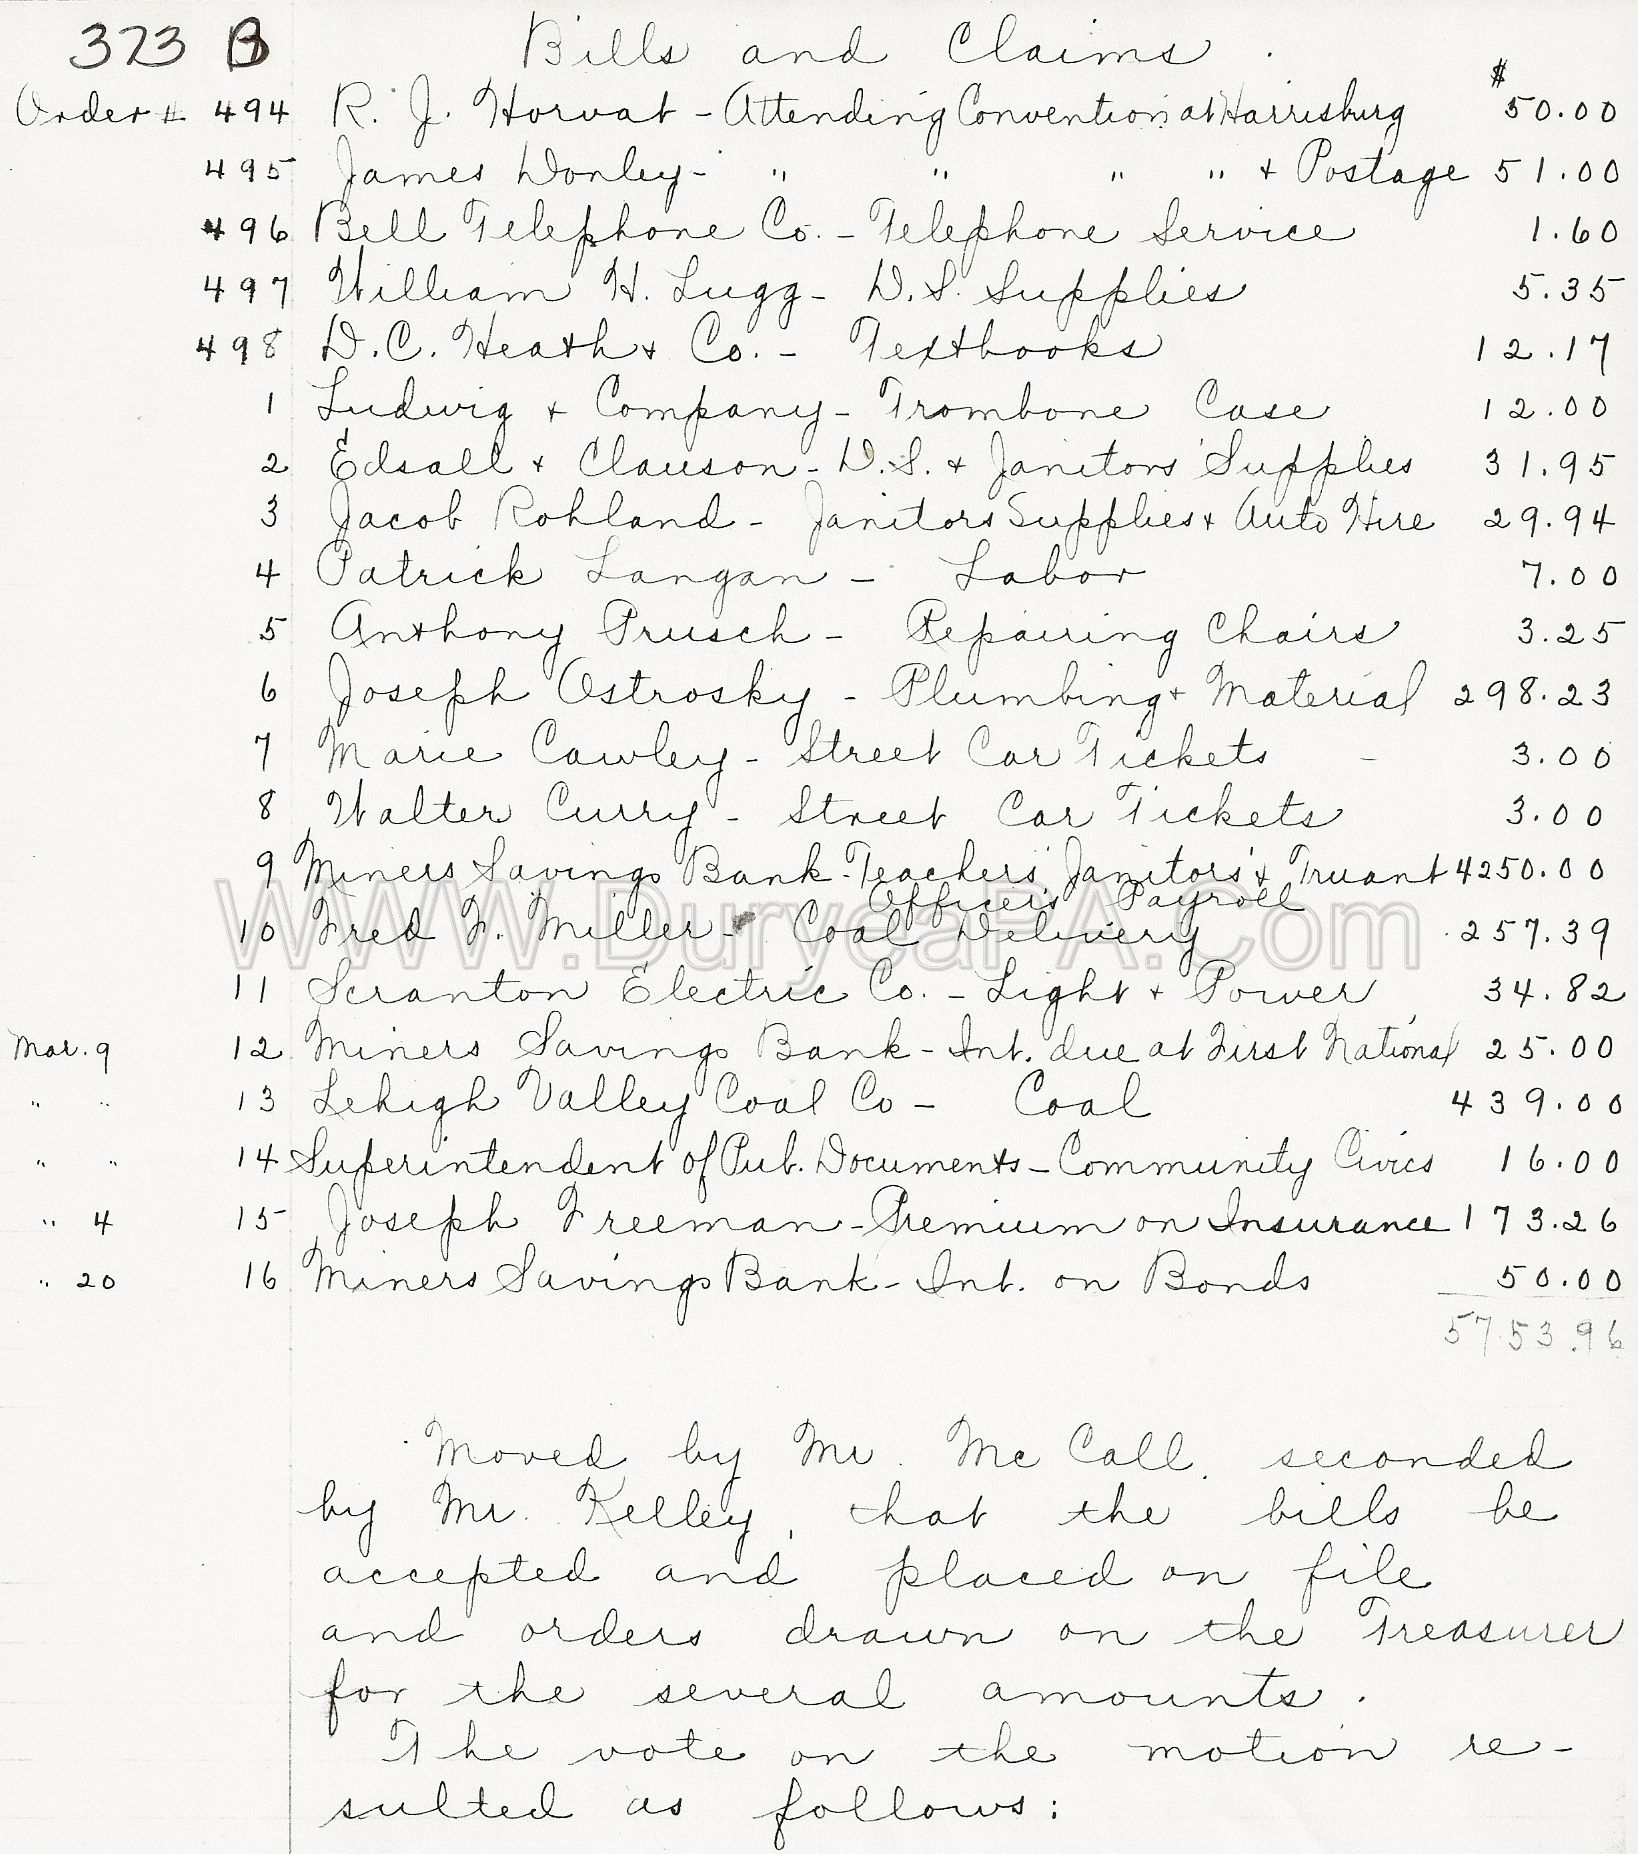 373 B
Bills and Claims
$
Order # 494 R. J. Horvat - Attending Convention at Harrisburg 50.00
495 James Donley - " " " " + Postage 51.00
496 Bell Telephone Co. - Telephone Service 1.60
497 William H. Lugg - D.S. Supplies 5.35
498 D.C. Heath + Co. - Textbooks 12.17
1 Ludwig + Company - Trombone Case 12.00
2 Edsall + Clauson - D.S. + Janitors' Supplies 31.95
3 Jacob Rohland - Janitors Supplies + Auto Hire 29.94
4 Patrick Langan - Labor 7.00
5 Anthony Prusch - Repairing Chairs 3.25
6 Joseph Ostrosky - Plumbing + Material 298.23
7 Marie Cawley - Street Car Tickets - 3.00
8 Walter Curry - Street Car Tickets 3.00
9 Miners Savings Bank - Teachers' Janitors' + Truant 4250.00
Officer's Payroll
10 Fred F. Miller - Coal Delivery 257.39
WWW.DuryeaPA.Com
11 Scranton Electric Co. - Light + Power 34.82
Mar. 9 12 Miners Savings Bank - Int. due at First National 25.00
" " 13 Lehigh Valley Coal Co - Coal 439.00
" " 14 Superintendent of Pub. Documents - Community Civics 16.00
" 4 15 Joseph Freeman - Premium on Insurance 173.26
" 20 16 Miners Savings Bank - Int. on Bonds 50.00
5753.96
Moved by Mr. McCall, seconded
by Mr. Kelley, that the bills be
accepted and placed on file
and orders drawn on the Treasurer
for the several amounts.
The vote on the motion re-
sulted as follows: